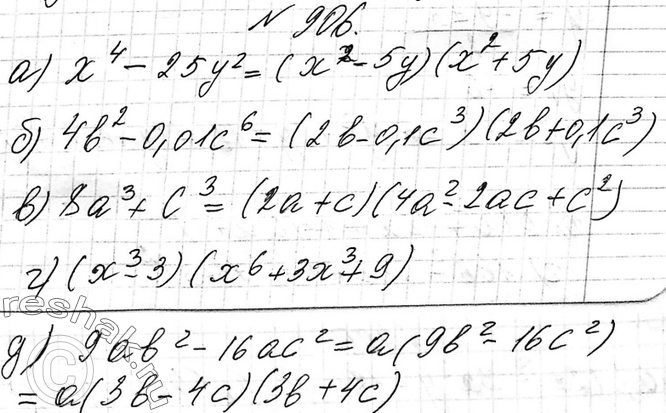 N 906.
а) x⁴ - 25y² = (x² - 5y)(x² + 5y)
б) 4b² - 0,01c⁶ = (2b - 0,1c³)(2b + 0,1c³)
в) 8a³ + c³ = (2a + c)(4a² - 2ac + c²)
г) (x³ - 3)(x⁶ + 3x³ + 9)
д) 9ab² - 16ac² = a(9b² - 16c²)
= a(3b - 4c)(3b + 4c)